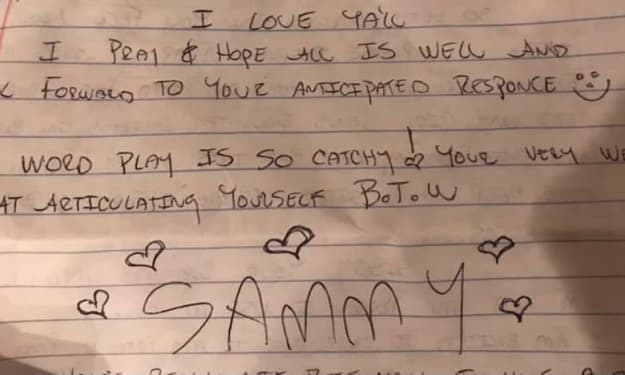 I LOVE YA'LL
I PRAY & HOPE ALL IS WELL AND
FORWARD TO YOUR ANTICIPATED RESPONCE
WORD PLAY IS SO CATCHY! YOUR VERY
AT ARTICULATING YOURSELF B.T.W
SAMMY